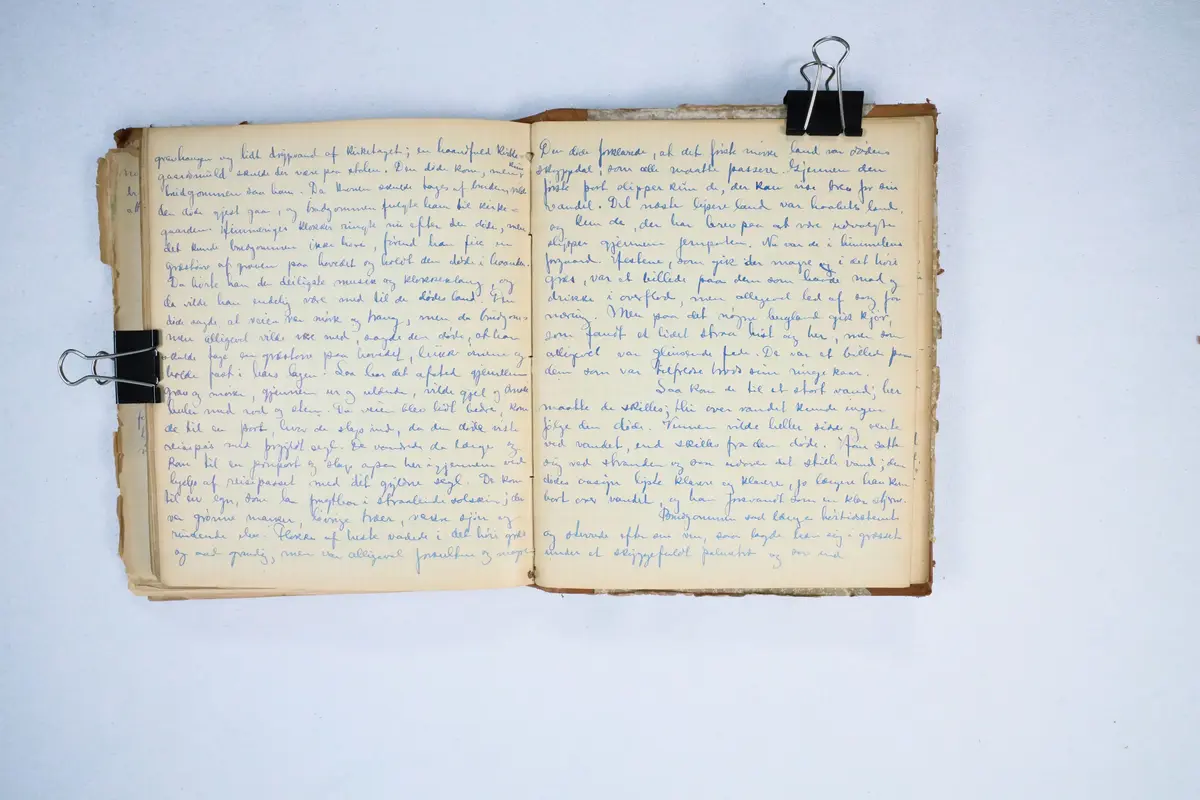 gravhaugen og lidt drypvand af kirketaget; en haandfuld kirke-
gaardsmuld skulde der være paa stolen. Den døde kom, men kun
brudgommen saa ham. Da konen skulde tages af bruden, vilde
den døde gjest gaa, og brudgommen fulgte ham til kirke-
gaarden. Himmeriges klokker ringte nu efter den døde, men
det kunde brudgommen ikke høre, førend han fik en
græstørv af graven paa hovedet og holdt den døde i haanden.
Da hørte han den deiligste musik og klokkeklang, og
da vilde han endelig være med til de dødes land. Den
døde sagde at veien var mørk og trang, men da brudgom-
men alligevel vilde være med, sagde den døde, at han
skulde tage en græstørv paa hovedet, lukke øinene og
holde fast i hans lagen. Saa bar det afsted gjennem
græs og mørke, gjennem ur og ulænde, vilde gjel og dunkle
huler med rod og sten. Da veien blev lidt bedre, kom
de til en port, hvor de slap ind, da den døde viste
reisepas med forgyldt segl. De vandrede da længe og
kom til en jernport og slap ogsaa her igjennem ved
hjelp af reisepasset med det gyldne segl. De kom
til en egn, som laa fragtbar i straalende solskin; der
var grønne marker, løvrige trær, vakre sjøer og
rindende elve. Flokke af heste vadede i det høie græs
og aad graadig, men var alligevel forsultne og magre
Den døde forklarede, at det første mørke land var dødens
skyggedal, som alle maatte passere. Gjennem den
første port slipper kun de, der kan vise brev for sin
vandel. Det næste lysere land var haabets land,
og kun de, der har brev paa at være udvalgte
slipper gjennem jernporten. Nu var de i himmelens
forgaard. Hestene, som gik der magre og i det høie
græs, var et billede paa dem som havde mad og
drikke i overflod, men alligevel led af sorg for
næring. Men paa det nøgne bergland gik kjør,
som fandt et lidet straa hist og her, men som
alligevel var glinsende fede. De var et billede paa
dem som var tilfredse trods sine ringe kaar.
Saa kom de til et stort vand; her
maatte de skilles; thi over vandet kunde ingen
følge den døde. Vennen vilde heller sidde og vente
ved vandet, end skilles fra den døde. Han satte
sig ved stranden og saa udover det stille vand; den
dødes aasyn lyste klarere og klarere, jo længere han kom
bort over vandet, og han forsvandt som en klar stjerne.
Brudgommen sad længe høitidsstemt
og stirrede efter sin ven, saa lagde han sig i græsset
under et skyggefuldt palmetræ og sov ind